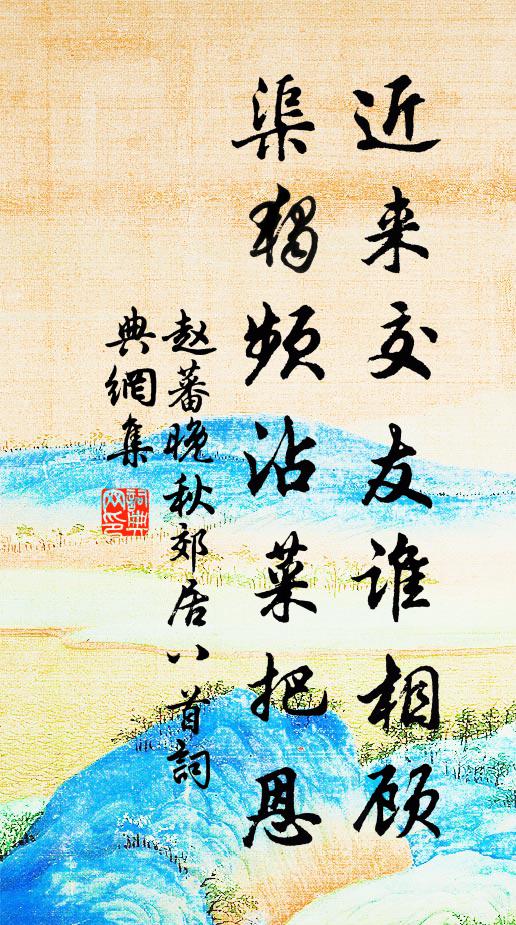 近来交友谁相顾
渠独频沾菜把恩
赵蕃晚秋郊居八首词
典網集